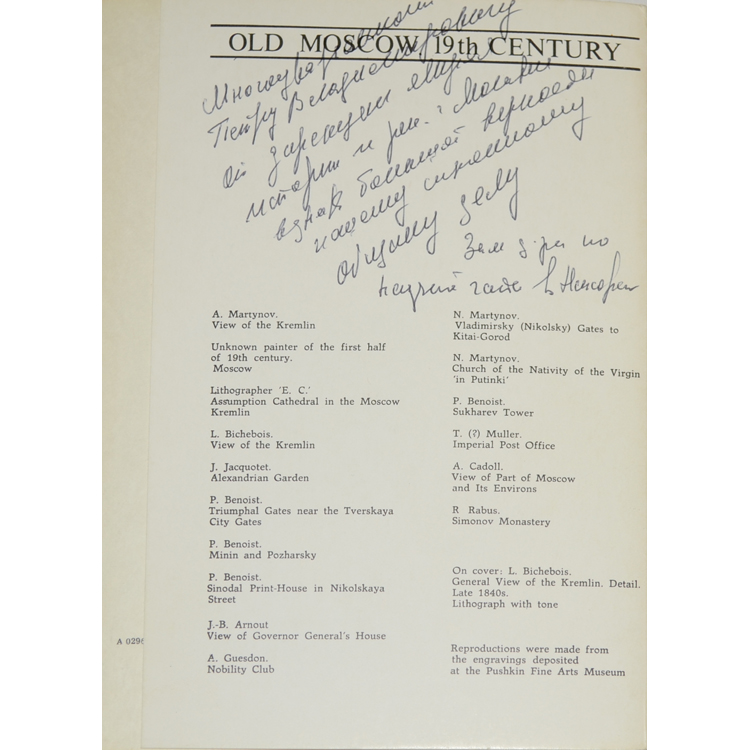 OLD MOSCOW, 19th CENTURY
Многоуважаемому
Петру Владимировичу
от
истории и рек.
в знак большой верности
нашему скромному
общему делу
Зам д-ра по
научной части
A. Martynov.
View of the Kremlin
Unknown painter of the first half
of 19th century.
Moscow
Lithographer 'E. C.'
Assumption Cathedral in the Moscow
Kremlin
L. Bichebois.
View of the Kremlin
J. Jacquotet.
Alexandrian Garden
P. Benoist.
Triumphal Gates near the Tverskaya
City Gates
P. Benoist.
Minin and Pozharsky
P. Benoist.
Sinodal Print-House in Nikolskaya
Street
J.-B. Arnout
View of Governor General's House
A. Guesdon.
Nobility Club
N. Martynov.
Vladimirsky (Nikolsky) Gates to
Kitai-Gorod
N. Martynov.
Church of the Nativity of the Virgin
'in Putinki'
P. Benoist.
Sukharev Tower
T. (?) Muller.
Imperial Post Office
A. Cadoll.
View of Part of Moscow
and Its Environs
R Rabus.
Simonov Monastery
On cover: L. Bichebois.
General View of the Kremlin. Detail.
Late 1840s.
Lithograph with tone
Reproductions were made from
the engravings deposited
at the Pushkin Fine Arts Museum
A 0296